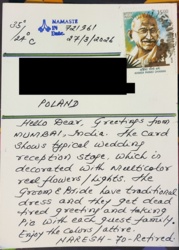 35°/24°C
NAMASTE
721961
27/3/2026
POLAND
Hello Dear, Greetings from
MUMBAI, India. The Card
Shows typical wedding
reception stage. which is
decorated with Multicolor
real flowers/Lights. The
Groom & Bride have traditional
dress and they get dead
tired greeting and taking
Pic with each guest family.
Enjoy the colors/attire.
NARESH-70-Retired